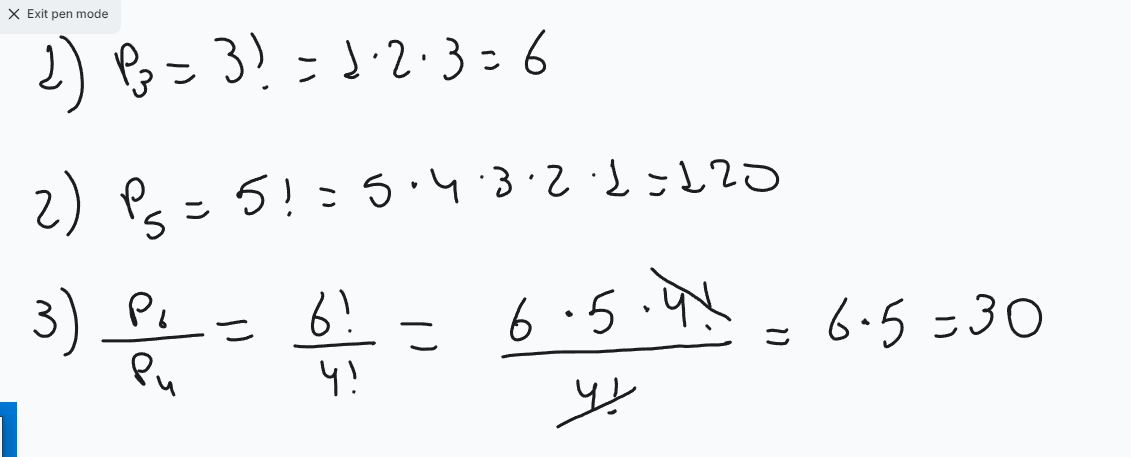 Exit pen mode
1) P₃ = 3! = 1·2·3 = 6
2) P₅ = 5! = 5·4·3·2·1 = 120
3) P₆/P₄ = 6!/4! = 6·5·4!/4! = 6·5 = 30